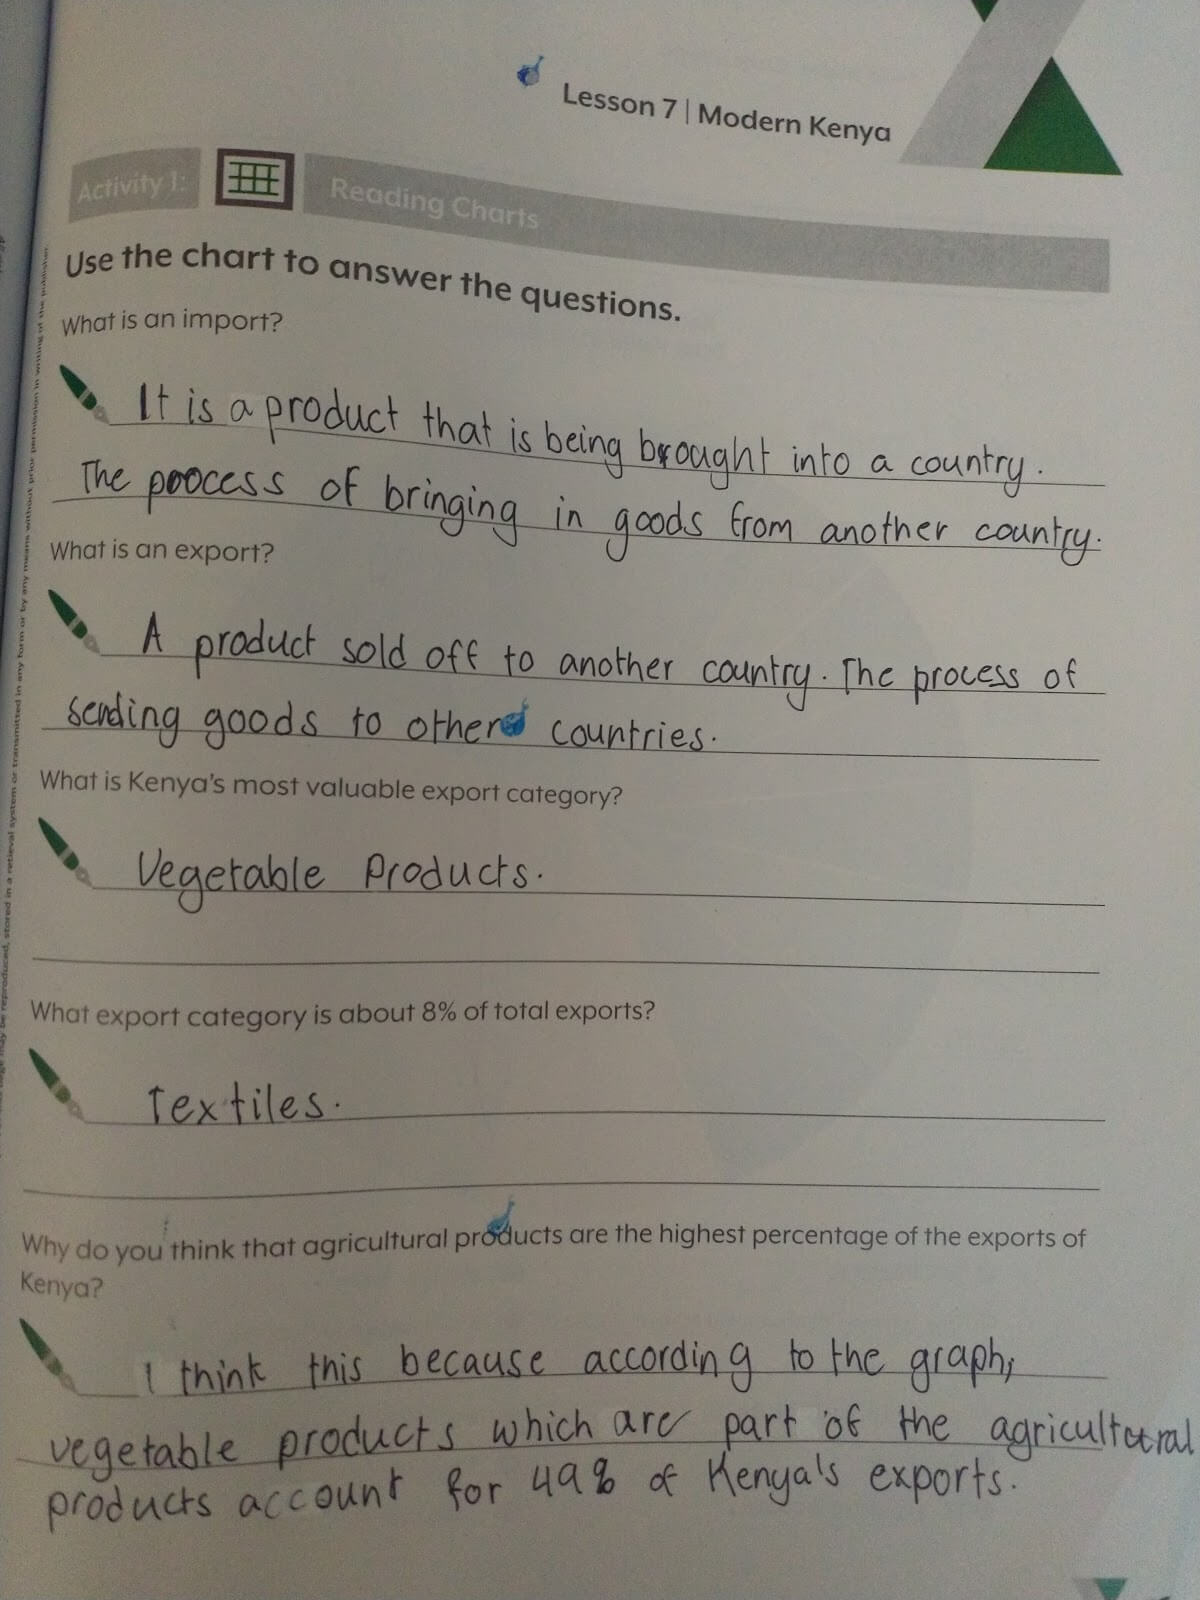 Lesson 7 | Modern Kenya
Activity 1:
Reading Charts
Use the chart to answer the questions.
What is an import?
It is a product that is being brought into a country.
The poocess of bringing in goods from another country.
What is an export?
A product sold off to another country. The process of
sending goods to other countries.
What is Kenya's most valuable export category?
Vegetable Products.
What export category is about 8% of total exports?
Textiles.
Why do you think that agricultural products are the highest percentage of the exports of
Kenya?
I think this because according to the graph,
vegetable products which are part of the agricultural
products account for 49% of Kenya's exports.